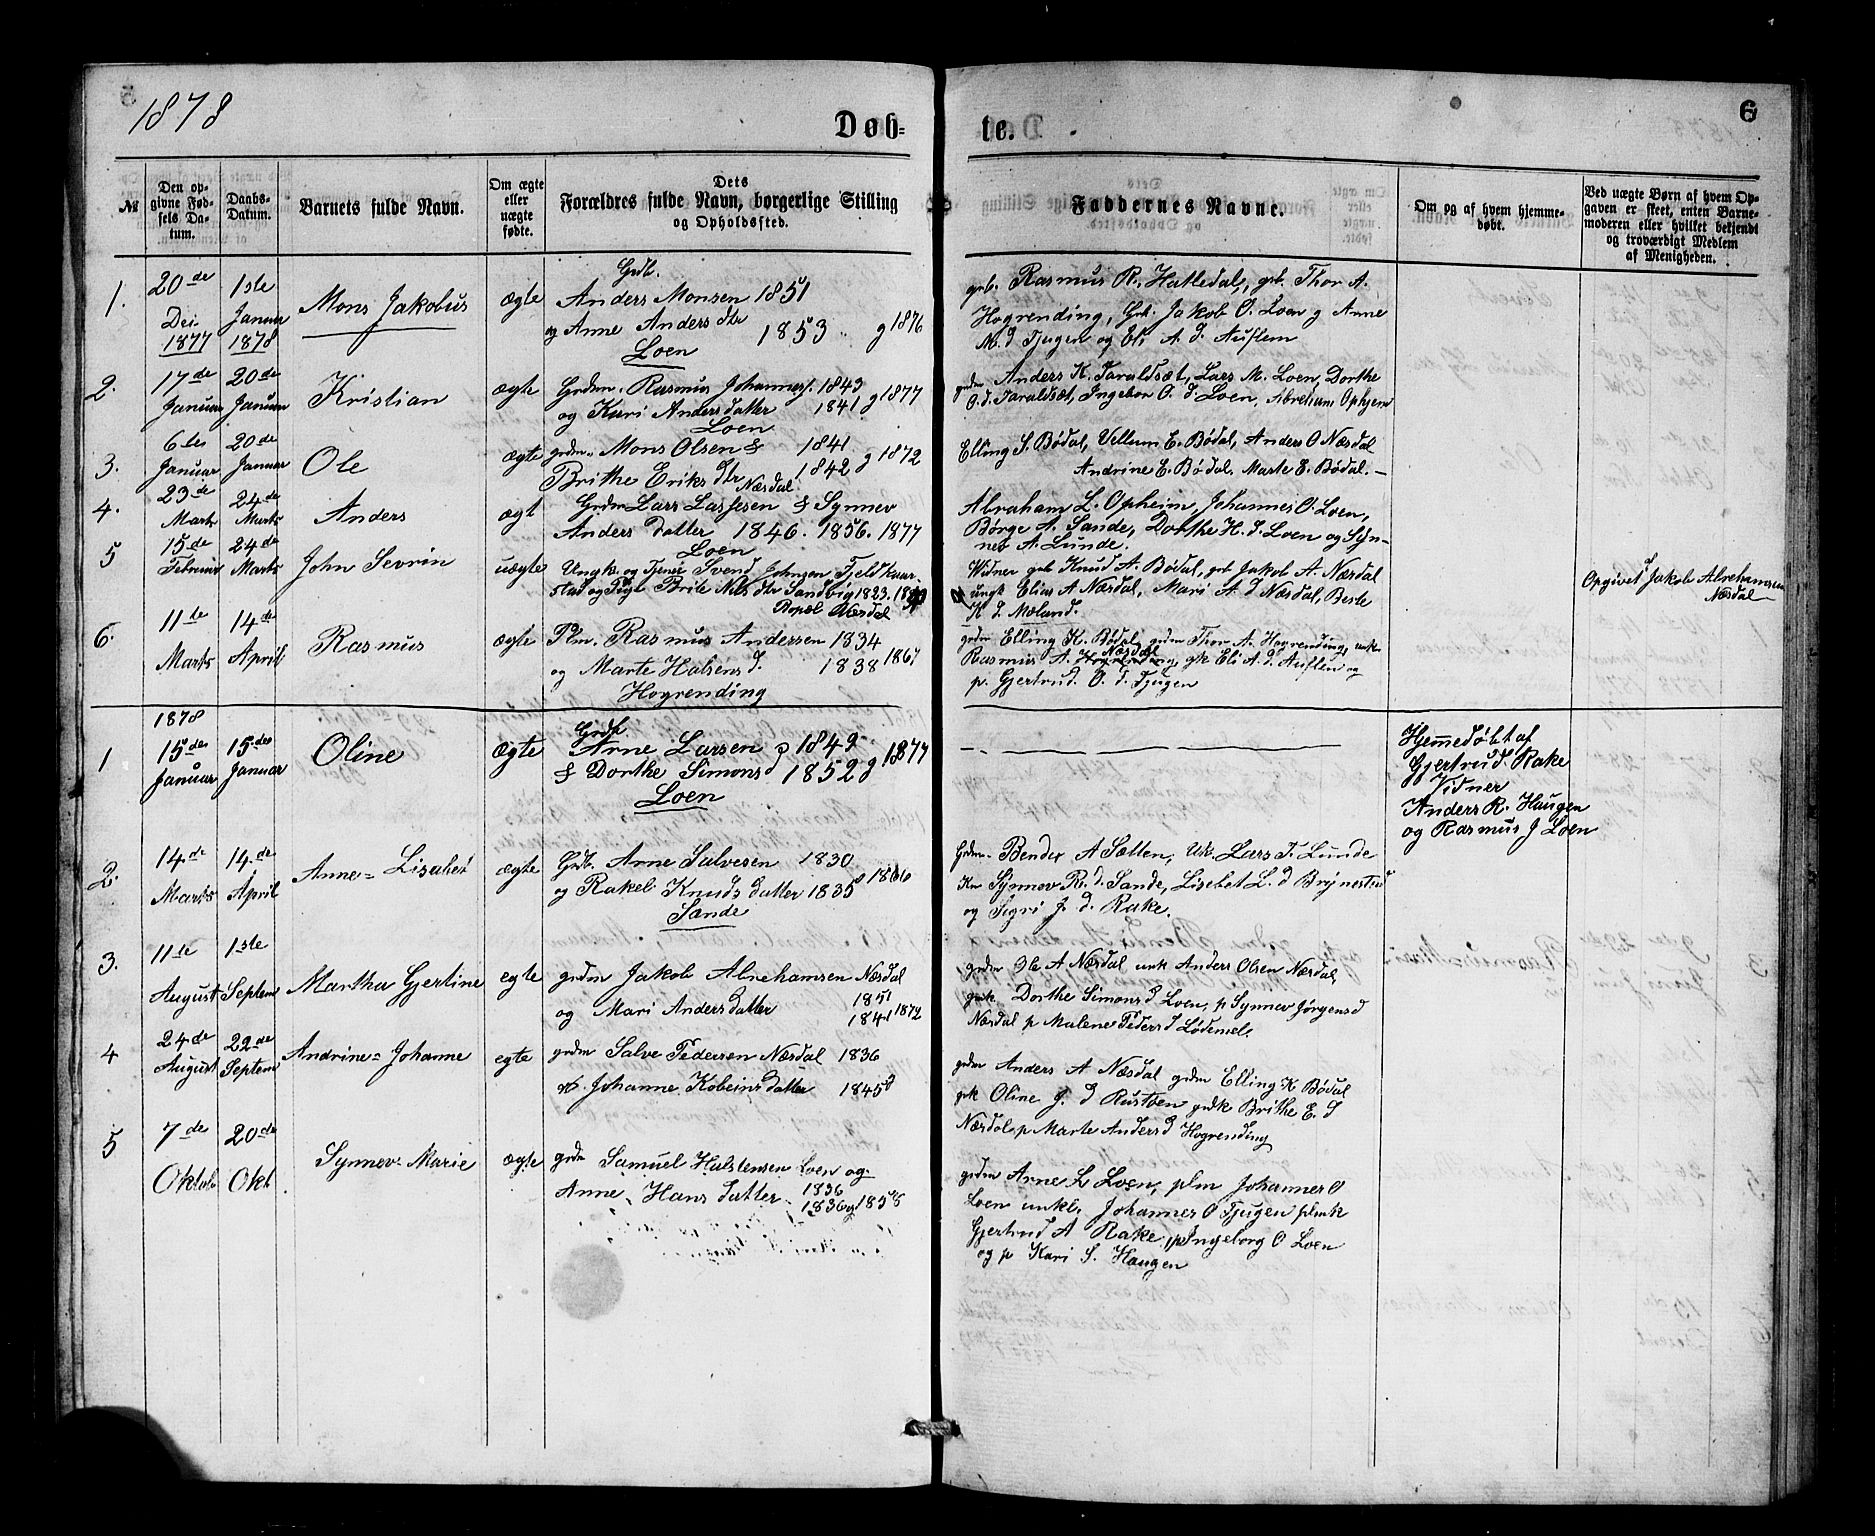 1878
Døb-
te.
6
№
Den op-
givne Fød-
sels Da-
tum.
Daabs-
Datum.
Barnets fulde Navn.
Om ægte
eller
uægte
fødte.
Dets
Forældres fulde Navn, borgerlige Stilling
og Opholdssted.
Faddernes Navne.
Om og af hvem hjemme-
døbt.
Ved uægte Børn af hvem Op-
gaven er skeet, enten Barne-
moderen eller hvilket bekjendt
og troværdigt Medlem
af Menigheden.
1.
20de
Dei
1877
1ste
Januar
1878
Mons Jakobus
ægte
Grdb.
Anders Monsen 1851
og Anne Anders dtr
1853 g 1876
Loen
grb. Rasmus R. Hatledal, grb. Thor A.
Hogrending, Grb. Jakob O. Loen g Anne
M. d Tjugen og Eli A. d. Auflem
2.
17de
Januar
20de
Januar
Kristian
ægte
Grdm. Rasmus Johannes. 1843
og Kari Andersdatter 1841 g 1877
Loen
grdm Anders K. Taraldsæt, Lars M. Loen, Dorthe
O. d. Taraldsæt, Ingebor O. d Loen, Abraham Ophjem
3.
6te
Januar
20de
Januar
Ole
ægte
grdm. Mons Olsen & 1841
Brithe Eriks dtr 1842 g 1872
Næsdal
Elling S. Bødal, Vellum E. Bødal, Anders O Næsdal
Andrine E. Bødal, Marte E. Bødal. —
4.
23de
Marts
24de
Marts
Anders
ægt
Grdm Lars Lassesen & Synnev
Anders datter 1846. 1856. 1877
Loen
Abraham L. Opheim, Johannes O. Loen,
Børge A. Sande, Dorthe H. d. Loen og Syn-
nev A. Lunde.
5
15de
Februar
24de
Marts
John Sevrin
uægte
Ungk. og Tjener Svend Johnsen Fjeldkaar-
stad og Pige Brite Nils dtr Sandvig 1823.
Bopæl Næsdal
Widner grb Knud A. Bødal, grb Jakob A. Næsdal
ungk Elias A Næsdal, Mari A. d Næsdal, Beste
K d. Mæland.
Opgivet Jakob Abrehamsen
Næsdal
6.
11te
Marts
14de
April
Rasmus
ægte
Plm. Rasmus Andersen 1834
og Marte Halsens d. 1838 1867
Hogrending
grdm Elling K. Bødal, grdm Thor A. Hogrending, unk.
Næsdal
Rasmus A. Hogrending, gk Eli A. d. Auflem og
p. Gjertrud. O. d. Tjugen
1
1878
15de
Januar
15de
Januar
Oline
ægte
Grdb
Arne Larsen 1849
& Dorthe Simons d 1852 g 1877
Loen
Hjemedøbt af
Gjertrud. Rake
Vidner
Anders R. Haugen
og Rasmus J Loen
2.
14de
Marts
14de
April
Anne- Lisabet
ægte
Grdb. Arne Salvesen 1830
og Rakel Knuds datter 1835 1866
Sande
Grdm. Bender A Sætten, Uk. Lars T. Lunde
Km Synnev R. d. Sande, Lisebet L. d Brynestad
og Sigri J. d. Rake.
3.
11te
August
1ste
Septem
Martha Gjertine
egte
grdm Jakob Abrehamsen Næsdal
1851
og Mari Anders datter
1841 1872
grdm Ole A Næsdal unk Anders Olsen Næsdal
gmk Dorthe Simons d Loen, p Synnev Jørgensd
Næsdal p Malene Peders d Lødemel.
4
24de
August
22de
Septem
Andrine- Johanne
egte
grdm Salve Pedersen Næsdal 1836
og Johanne Kobeins datter 1845
grdm Anders A Næsdal grdm Elling K Bødal
gk Oline J. d Rustben grdk Brithe E. d
Næsdal p Marte Anders d Hogrending
5
7de
Oktob
20de
Okt.
Synnev- Marie
ægte
grdm Samuel Halstensen Loen og
Anne Hans datter 1836
1836 g 1858
grdm Arne L Loen, plm Johannes O
Loen unkl. Johannes O Tjugen plmk
Gjertrud A Rake, p Ingeborg O Loen
og p Kari S. Haugen